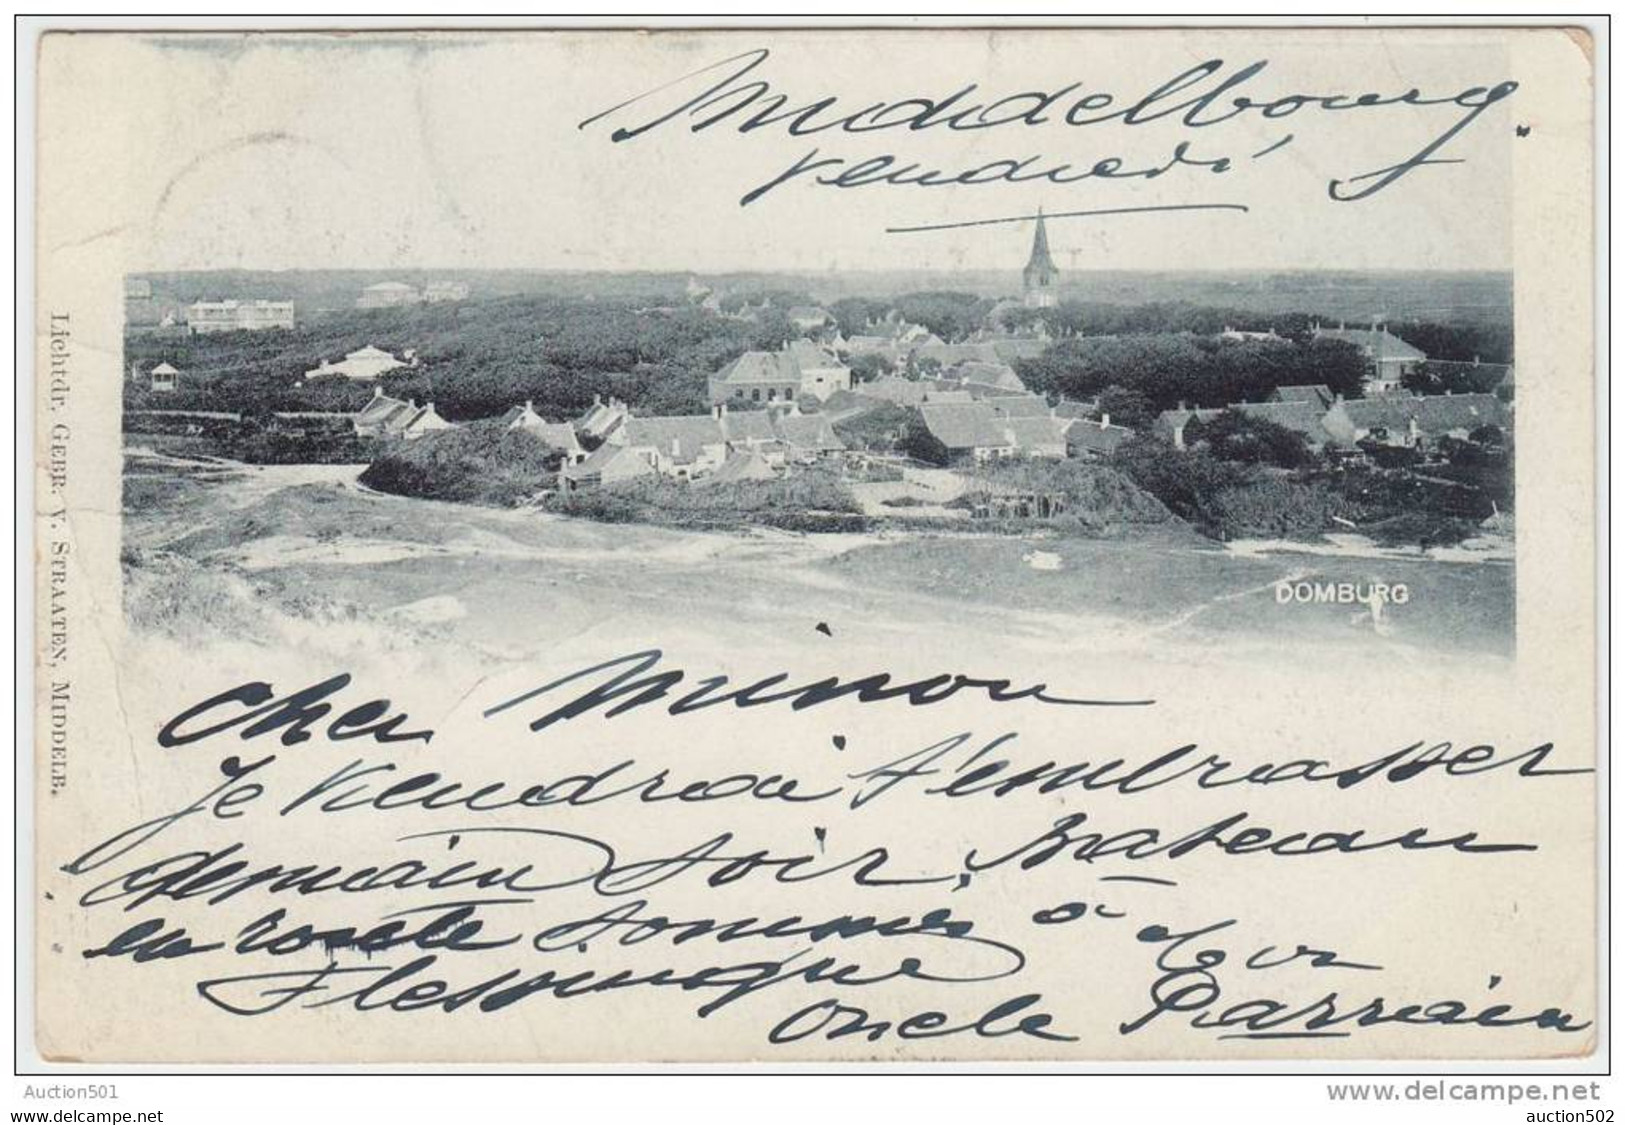 Middelbourg.
vendredi
DOMBURG
Lichtdr. GEBR. v. STRAATEN, MIDDELB.
Cher Minou
Je viendrai t'embrasser
demain soir. Bateau
en route sommes à
Flessingue
Oncle Parrain
Auction501
www.delcampe.net
auction502